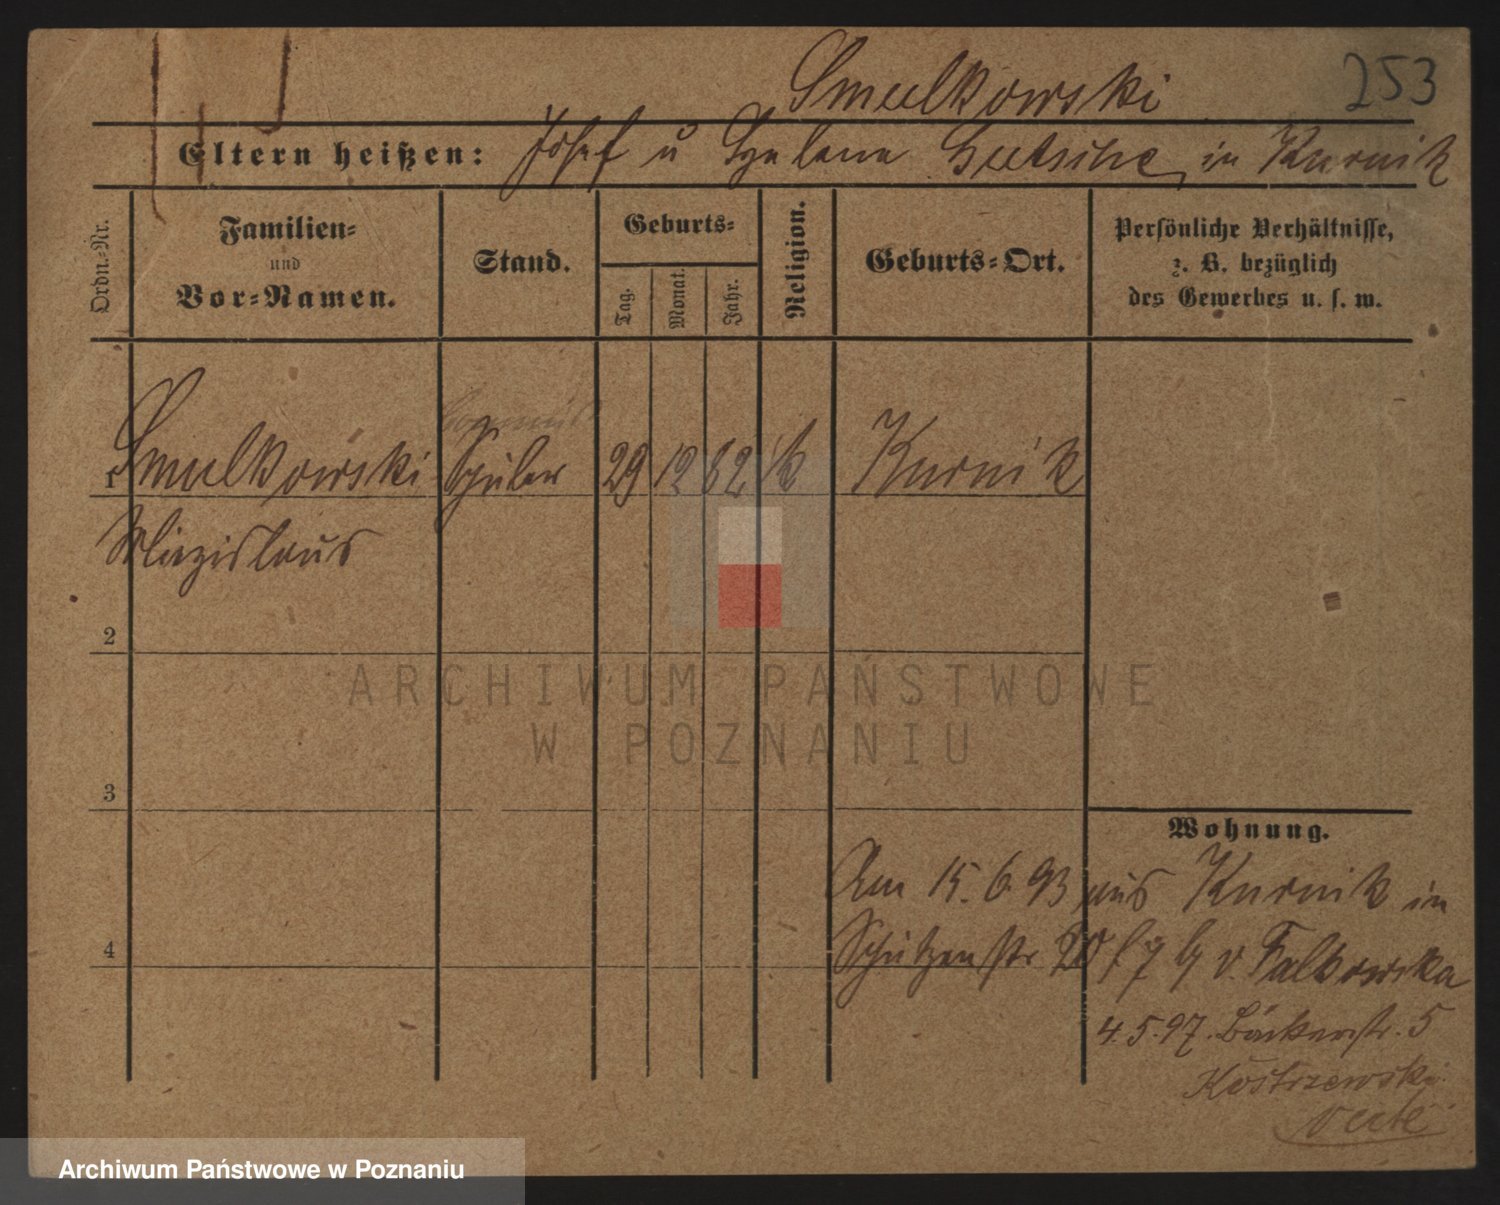 Smulkowski 253
Eltern heißen: Josef u Helene in Kurnik
Ordn.-Nr.
Familien-
und
Vor-Namen.
Stand.
Geburts-
Tag.
Monat.
Jahr.
Religion.
Geburts-Ort.
Persönliche Verhältnisse,
z. B. bezüglich
des Gewerbes u. s. w.
1 Smulkowski Schüler 29 12 82 k Kurnik
Miezislaus
2
3
Wohnung.
Am 15. 6. 93 aus Kurnik in
4 Schützenstr 20 b v. Falkowska
4.5.97. Bäckerstr. 5
Kostrzewski
ARCHIWUM PAŃSTWOWE
W POZNANIU
Archiwum Państwowe w Poznaniu